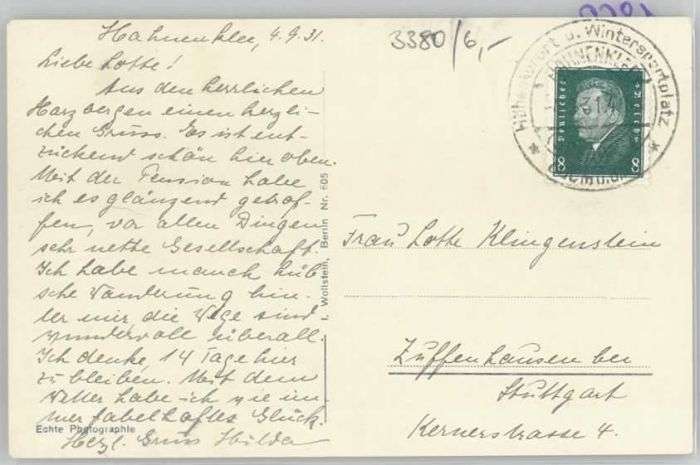 Hahnenklee, 4.9.31.
Liebe Lotte!
Aus den herrlichen
Harzbergen einen herzli-
chen Gruss. Es ist ent-
zückend schön hier oben.
Mit der Pension habe
ich es glänzend getrof-
fen, vor allen Dingen
sehr nette Gesellschaft.
Ich habe manch hüb-
sche Wanderung hin-
ter mir die Wege sind
wundervoll überall.
Ich denke, 14 Tage hier
zu bleiben. Mit dem
Wetter habe ich wie im-
mer fabelhaftes Glück.
Herzl. Gruss Hilda
Echte Photographie
Wollstein, Berlin Nr. 605
3380/6,-
Höhenkurort u. Wintersportplatz
HAHNENKLEE
Deutsches Reich
8 8
Frau Lotte Klingenstein
Zuffenhausen bei
Stuttgart
Kernerstrasse 4.